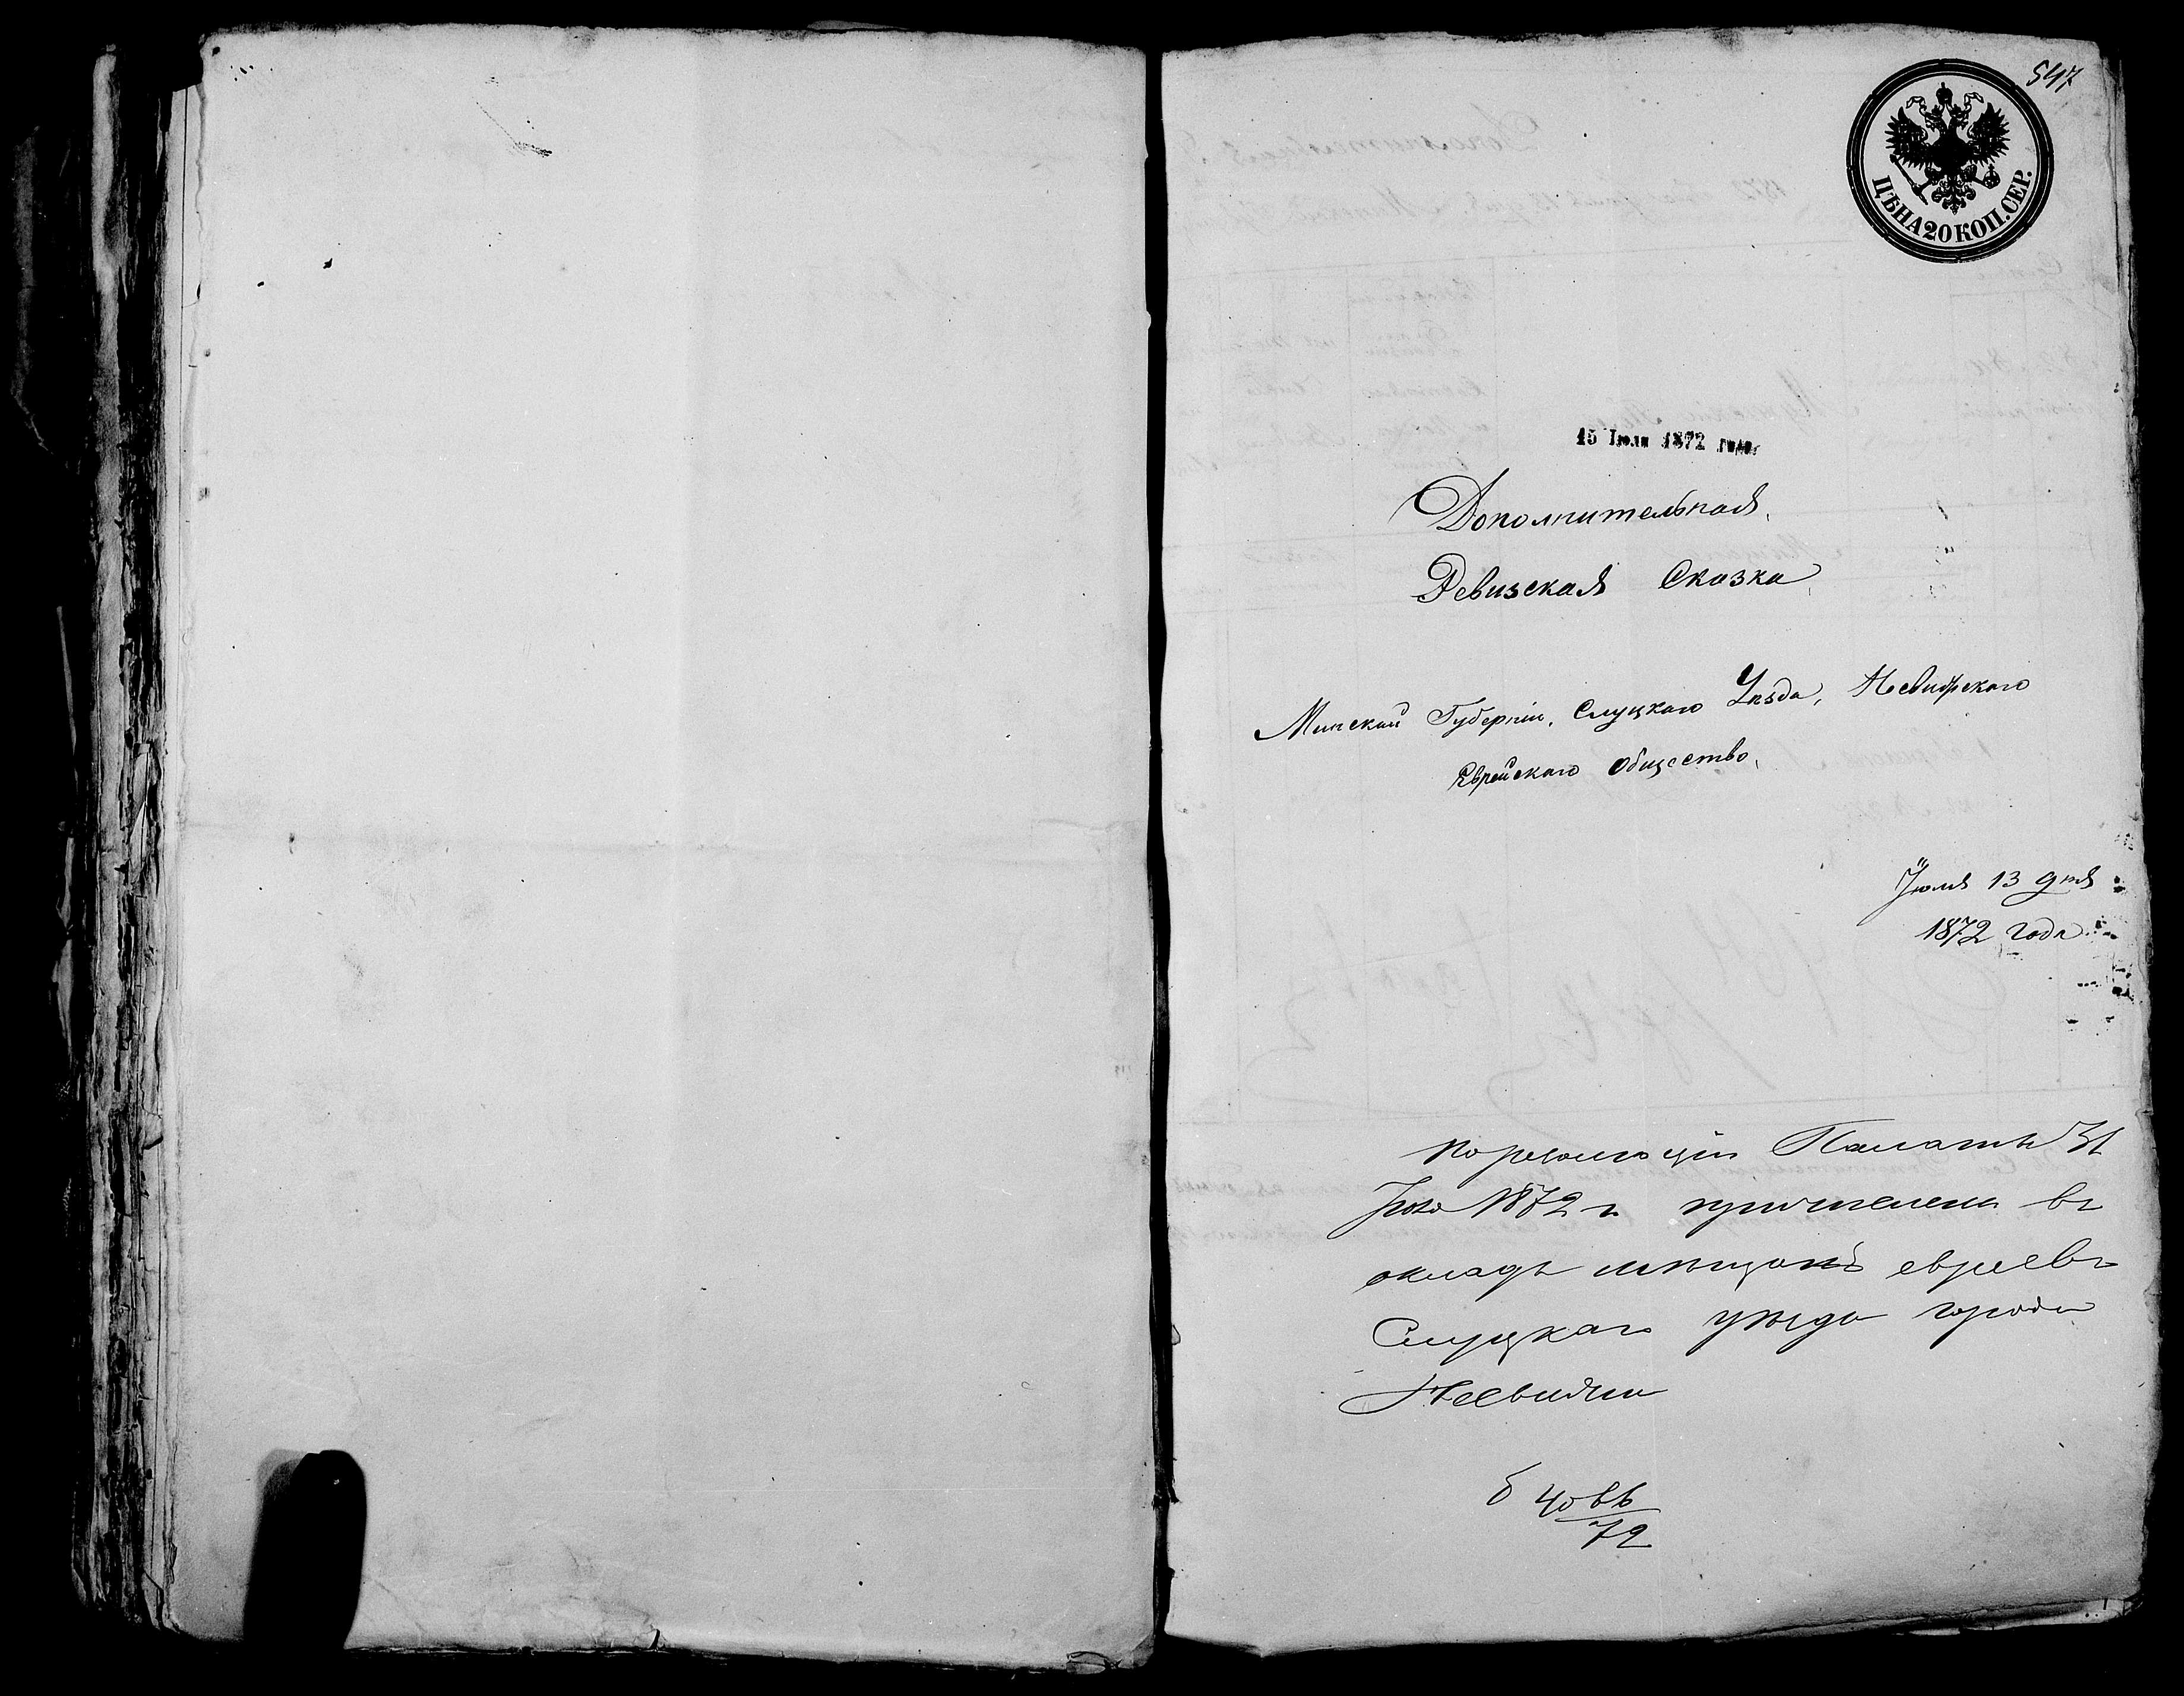 547
ЦѢНА 20 КОП. СЕР.
15 Іюля 1872 года
Дополнительная
Ревизская Сказка
Минской Губерніи, Слуцкаго Уѣзда, Несвижскаго
Еврейскаго Общество
Іюля 13 дня
1872 года
По резолюціи Палаты 31
Іюля 1872 г. причислены въ
окладъ мѣщанъ евреевъ
Слуцкаго уѣзда города
Несвижа
72